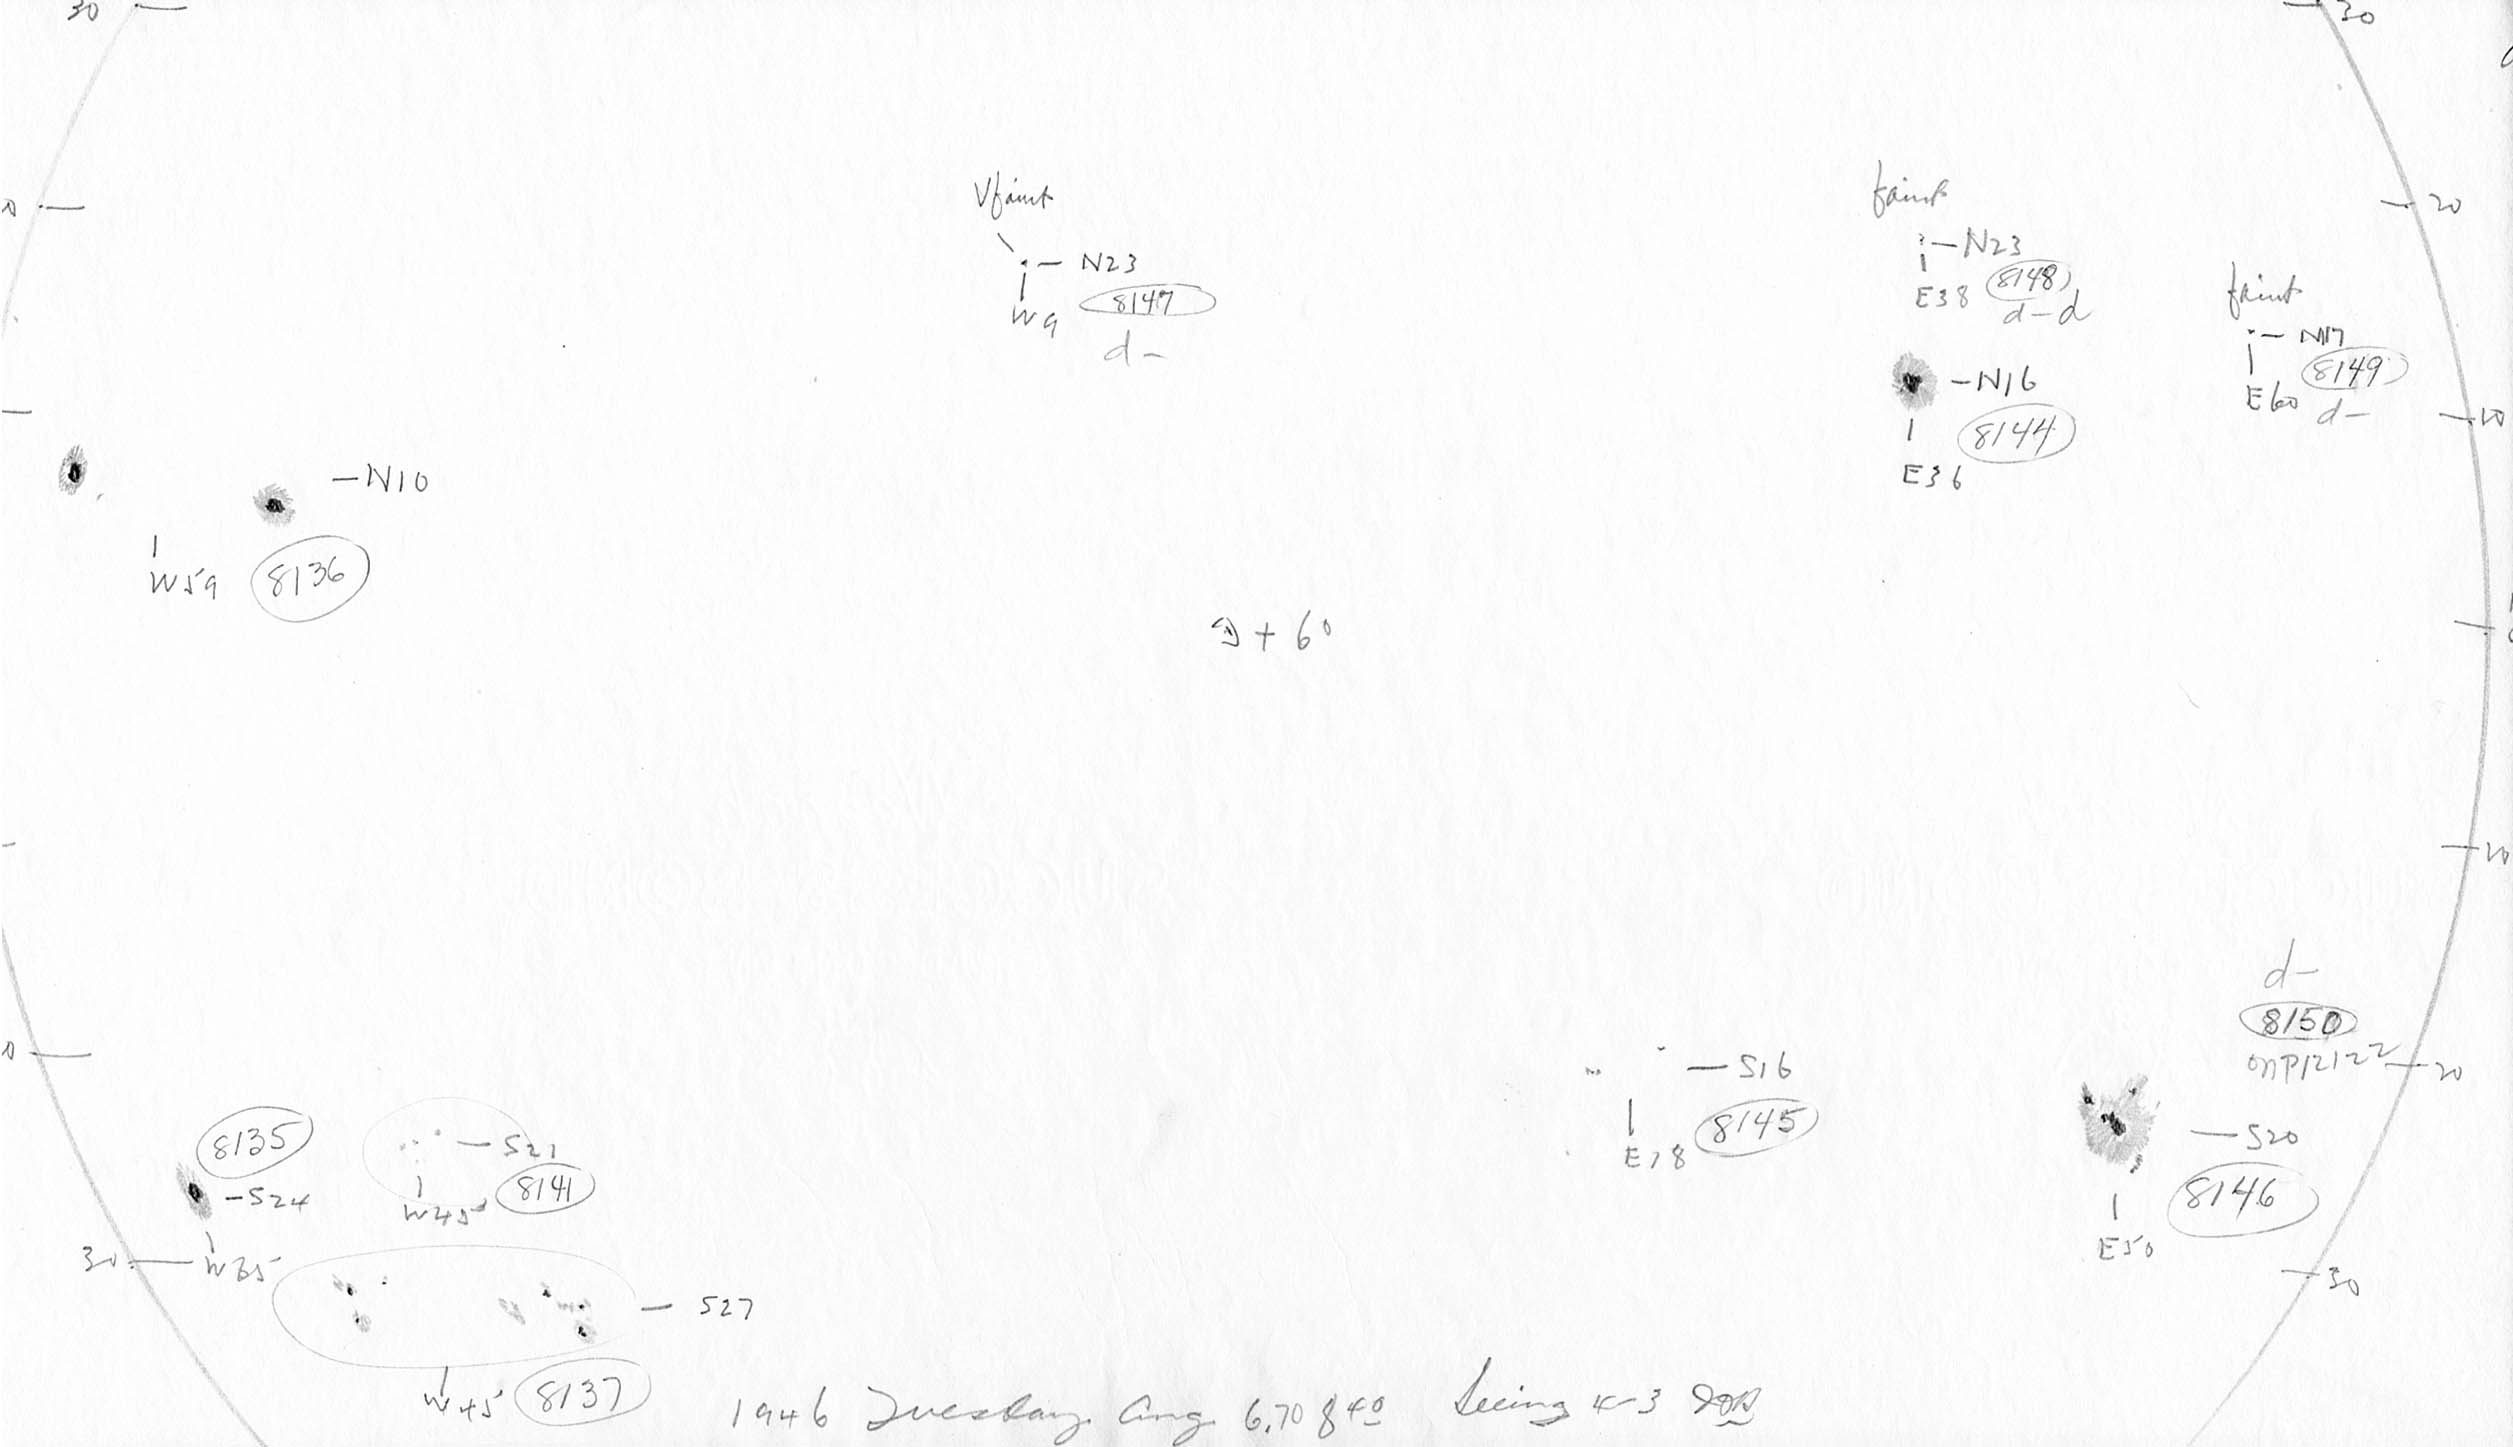 30
30
Vfaint
faint
20
N23
N23
8147
8148
W9
E38
d-
d-d
faint
N17
8149
E60
d-
N16
8144
E36
10
N10
W59
8136
+ 6°
10
d-
8150
20
S16
8145
E18
S20
8146
E50
8135
S24
S21
8141
W45
30
W65
30
S27
W45
8137
1946 Tuesday Aug. 6.70 8 40 Seeing 4-3